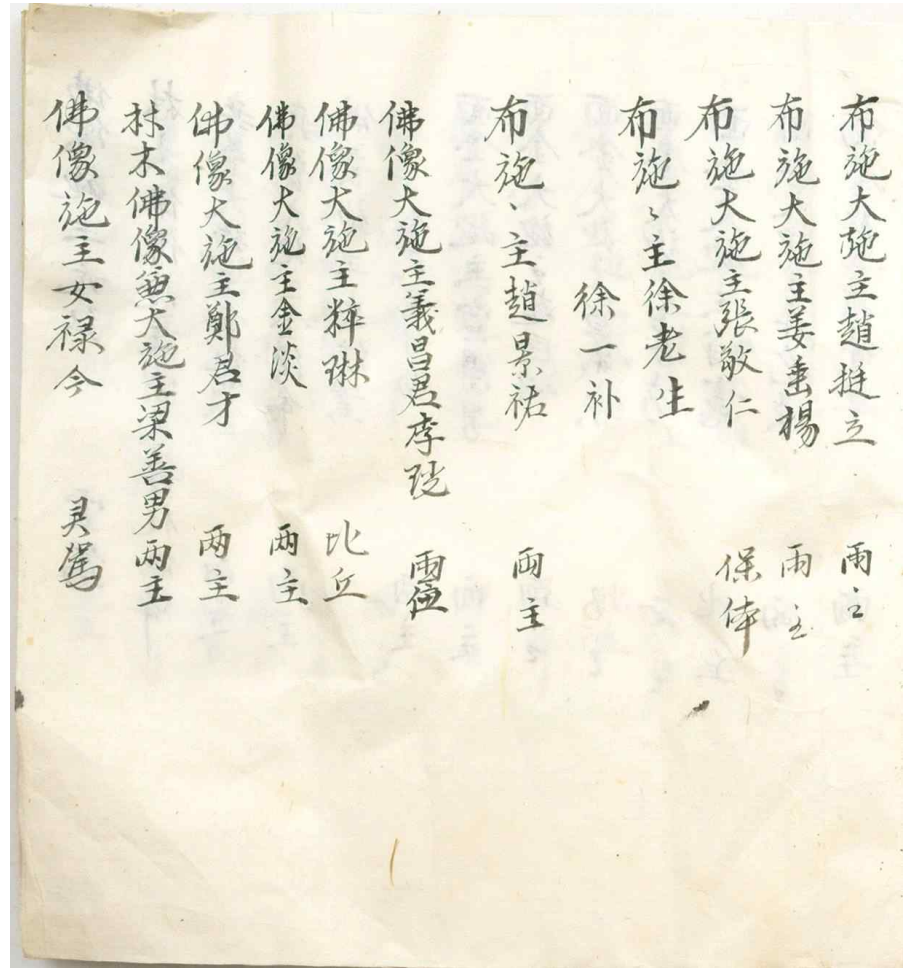 布施大施主趙挺立 兩主
布施大施主姜垂楊 兩主
布施大施主張敬仁 保体
布施、主徐老生
徐一补
布施、主趙景祐 兩主
佛像大施主義昌君李珖 兩位
佛像大施主粹琳 比丘
佛像大施主金淡 兩主
佛像大施主鄭君才 兩主
材木佛像兼大施主梁善男兩主
佛像施主女禄今 灵駕